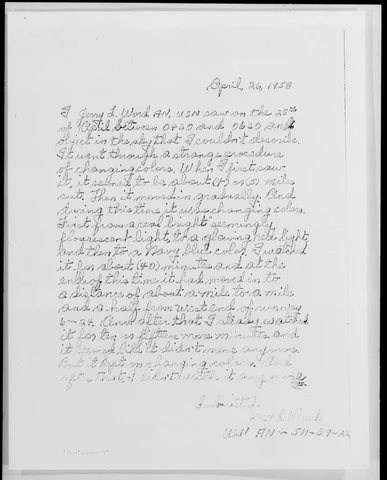 April, 26, 1958
I Jerry L. Ward AN, USN saw on the 25th
of April between 0430 and 0530 and
object in the sky that I couldn't describe.
It went through a strange procedure
of changing colors. When I first saw
it, it seemed to be about (4) or (5) miles
out. Then it moved in gradually. And
during this time it was changing colors.
First from a real bright seemingly
flourescent light, to a glowing red light,
and then to a Navy blue color. I watched
it for about (40) minutes and at the
end of this time it had moved in to
a distance of about a mile to a mile
and a half from west end of runway
6-24. And after that I steady watched
it for ten or fifteen more minutes and
it seemed like it didn't move anymore.
But it kept on changing colors. And
after that I didn't watch it any more
Submitted
Jerry L. Ward
AN